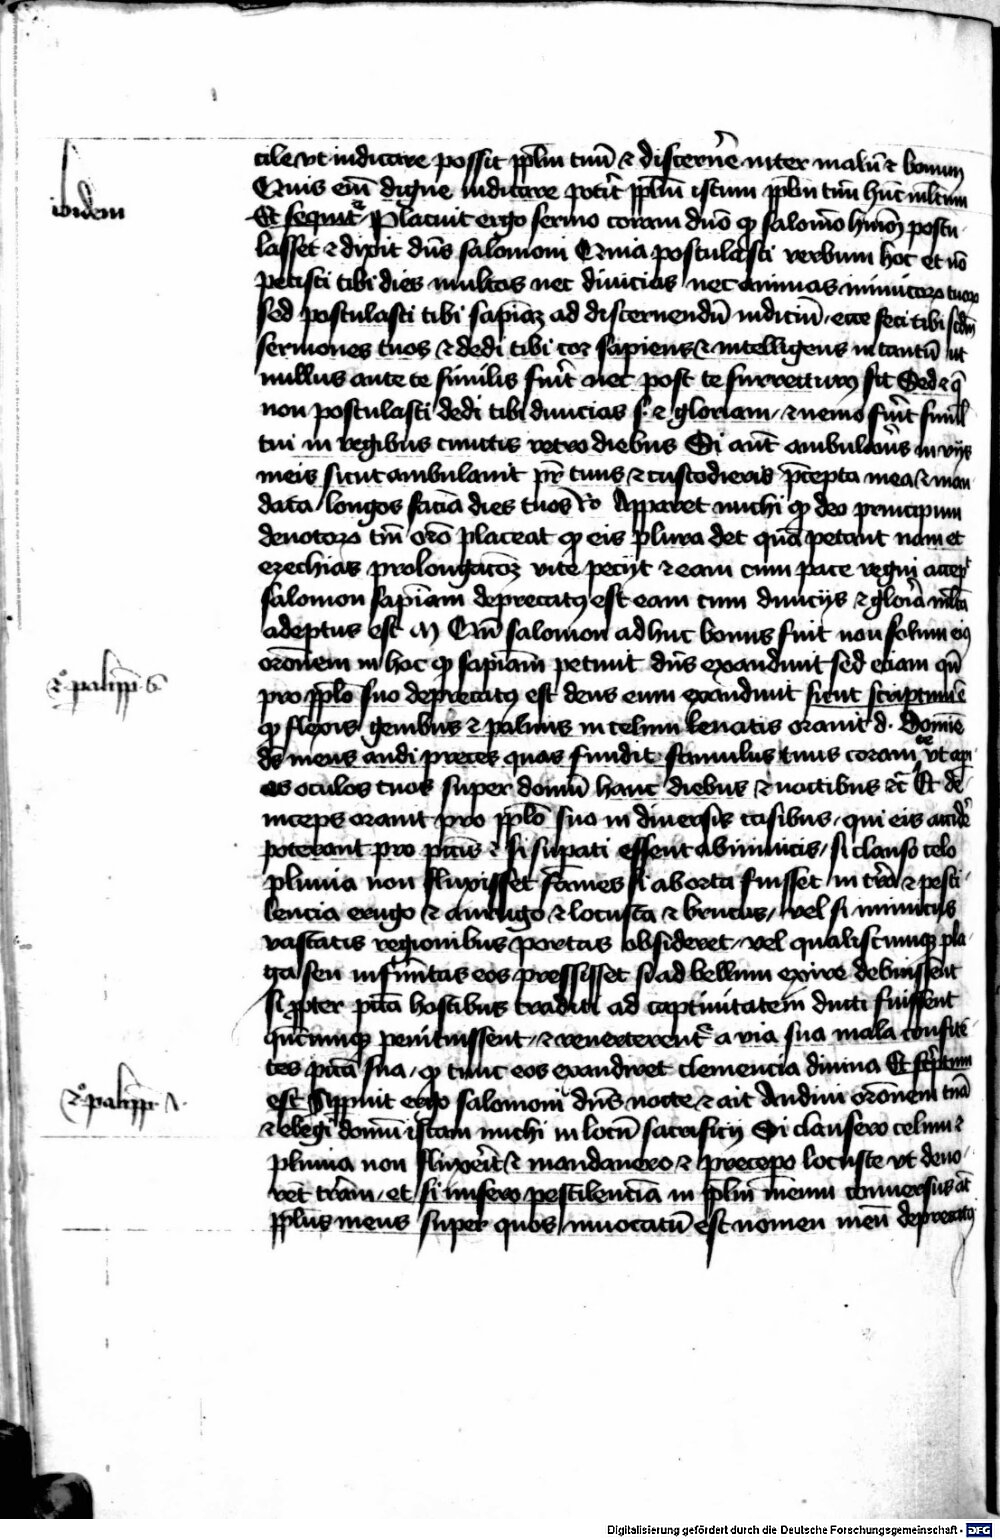 ibidem
cile vt iudicare possit pplm tuū & discernē inter malū & bonum
Quis eīm digne iudicare potit pplm istum pplm tuū hūc mltum
Et sequit᷑ Placuit ergo sermo coram dn̄o qͥ salomō hm̄oi postu
lasset & dixit dn̄s salomoni Quia postulasti verbum hoc et nō
petisti tibi dies multos nec diuicias nec animas inimicoꝝ tuoꝝ
sed postulasti tibi sapiāꝫ ad discernendū iudiciū / ecce feci tibi scdm̄
sermones tuos & dedi tibi cor sapiens & intelligens in tantū ut
nullus ante te similis fuit nec post te surrecturꝰ sit Sed & q̄
non postulasti dedi tibi diuicias s. & gloriam / & nemo fuit simil
tui in regibus cunctis retro diebus Si aut̄ ambulaūis in vijs
meis sicut ambulauit pr̄ tuus & custodieris p̄cepta mea & man
data / longos faciā dies tuos Ro Apparet michi qͥ deo principum
deuotoꝝ tm̄ orō placeat qͥ eis plura det quā petant nam et
ezechias prolongacōꝫ vite pecijt & eam cum pace regni accepͭ
salomon sapiām deprecatꝰ est eam cum diuicijs & gloriā mltā
adeptus est M Cū salomon adhuc bonus fuit non solum eiꝰ
orōnem in hoc qͥ sapiām petiuit dn̄s exaudiuit sed eciam qn̄
2º palipp̄. 6
pro pplo suo deprecatꝰ est deus eum exaudiuit sicut scriptum ē
qͥ flexis genibus & palmis in celum leuatis orauit d. Domīe
ds̄ meus audi preces quas fundit famulus tuus coram te vt api
as oculos tuos super domū hanc diebus & noctibus &c̄ Et de
inceps orauit pro pplo suo in diuersis casibus / qui eis accidē
poterant pro pctīs & si supati essent ab inimicis / si clauso celo
pluuia non fluxisset fames si aborta fuisset in tr̄a & pesti
lencia erugo & aurugo & locusta & brucus / vel si inimicus
vastatis regionibus portas obsideret / vel qualiscumqꝫ pla
ga seu infirmitas eos pressisset si ad bellum exire debuissent
si ppter pctā hostibus traditi ad captiuitatem ducti fuissent
qn̄cumqꝫ penituissent / & reuerterent᷑ a via sua mala confite
tes pctā sua / qͥ tunc eos exaudiret clemencia diuina Et sc̄ptum
2º palipp̄ 7.
est Apparuit ergo salomoni dn̄s nocte & ait Audiui orōnem tuā
& elegi domū istam michi in locū sacrificij Si clausero celum &
pluuia non fluxerit & mandauero & precepo locuste vt deuo
ret tr̄am / et si misero pestilenciā in pplm meum conuersus aūt
pplus meus super quos inuocatū est nomen meū deprecatꝰ